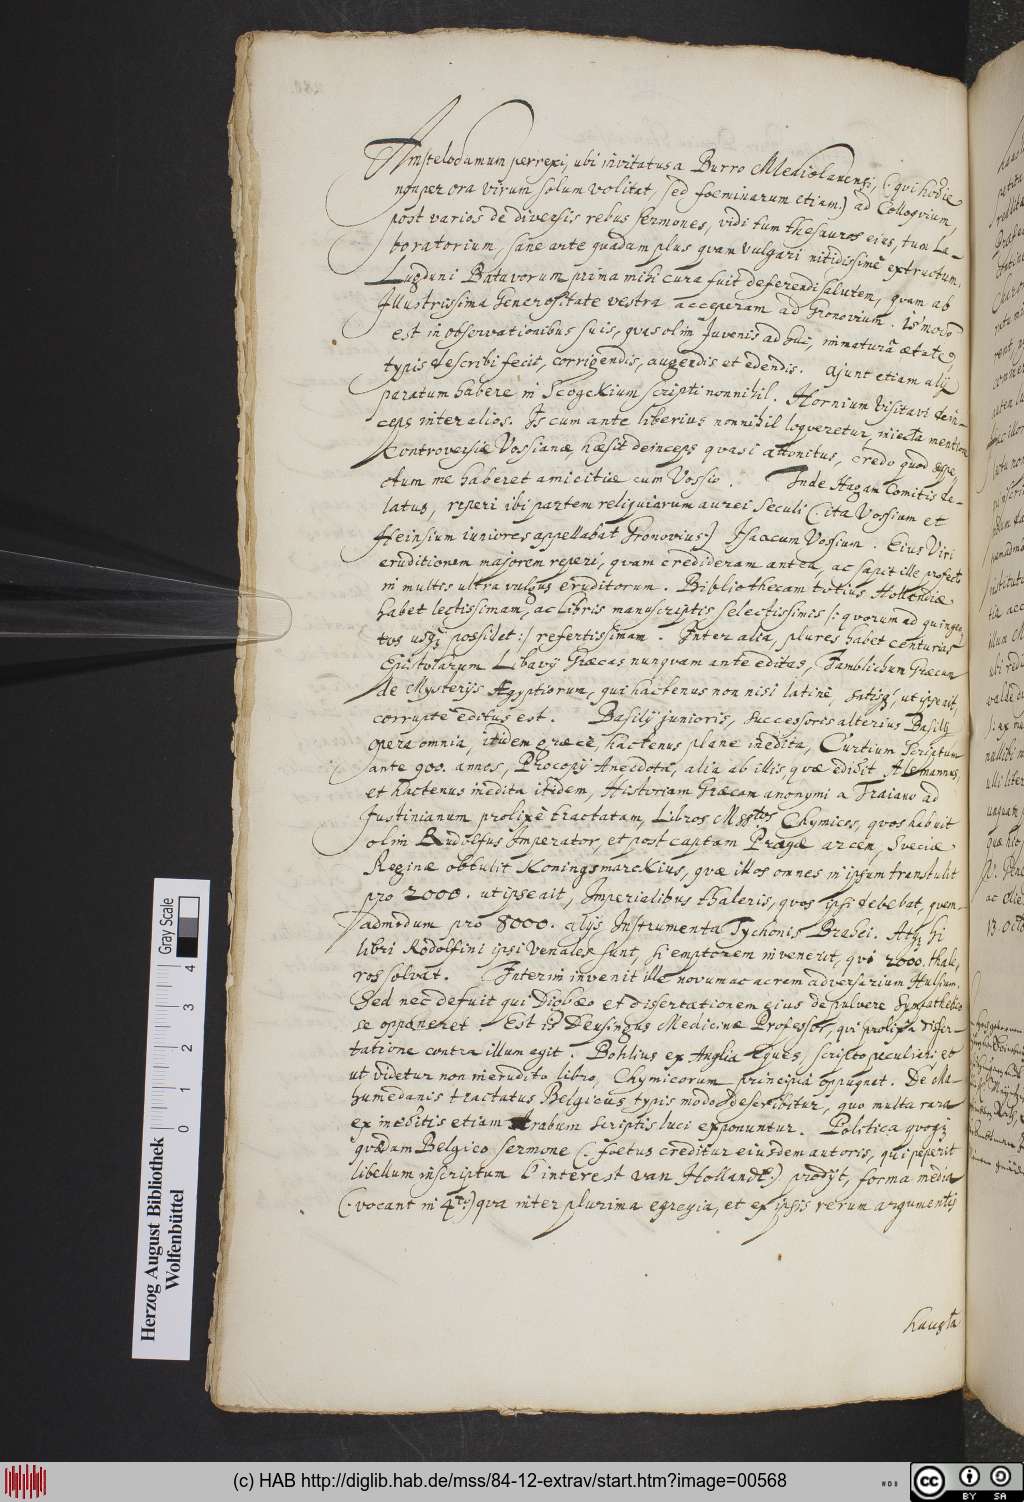 Amstelodamum perrexi, ubi invitatus a Burro Mediolanensi, (: qui hodie
non per ora virum solum volitat, sed foeminarum etiam:) ad Colloqvium,
post varios de diversis rebus sermones, vidi tum thesauros eius, tum La-
boratorium, sane arte quadam plus qvam vulgari nitidissimè extructum.
Lugduni Batavorum prima mihi cura fuit deferendi salutem, qvam ab
Illustrissima Generositate vestra acceperam ad Gronovium. Is modo
est in observationibus suis, qvas olim Juvenis adhuc, immaturâ ætate,
typis describi fecit, corrigendis, augendis et edendis. Ajunt etiam alij
paratum habere in Scogckium scripti nonnihil. Hornium visitavi dein-
ceps inter alios. Is cum ante liberius nonnihil loqveretur, iniecta mentione
Controversiæ Vossianæ, hæsit deinceps qvasi attonitus, credo quod
me haberet amicitiæ cum Vossio. Inde Hagam Comitis de-
latus, reperi ibi partem reliqviarum aurei seculi (: ita Vossium et
Heinsium iuniores appellabat Gronovius:) Isaacum Vossium. Eius Viri
eruditionem majorem reperi, qvam credideram antea, ac sapit ille profecto
in multis ultra vulgus eruditorum. Bibliothecam totius Hollandiæ
habet lectissimam, ac libris manuscriptis selectissimis /: qvorum ad quingen-
tos usq; possidet :/ refertissimam. Inter alia, plures habet centurias
Epistolarum Libanij Græcas nunqvam ante editas, Iamblichum Græcum
de Mysterijs Ægyptiorum, qui hactenus non nisi latinè, satisq;, ut ipse ait,
corruptè editus est. Basilij junioris, successoris alterius Basilij
opera omnia, itidem græcè, hactenus plane inedita, Curtium scriptum
ante 900. annos, Procopij Anecdota, alia ab illis, qvæ edidit Alemannus,
et hactenus inedita itidem, Historiam Græcam anonymi a Traiano ad
Justinianum prolixè tractatam, Libros Msstos Chymicos, qvos habuit
olim Rudolfus Imperator, et post captam Pragæ arcem, Sveciæ
Reginæ obtulit Koningsmarckius, qvæ illos omnes in ipsum transtulit
pro 2000. ut ipse ait, Imperialibus thaleris, qvos ipsi debebat, qvem-
admodum pro 8000. alijs Instrumenta Tychonis Brahei. Atq; hi
libri Rodolfini ipsi venales sunt, si emptorem invenerit, qvi 2000. thale-
ros solvat. Interim invenit ille novum ac acrem adversarium Hulsium.
Sed nec defuit qui Digbæo et dissertationem eius de pulvere Sympathetico
se opponeret. Est is Deusingus Medicinæ Professor, qvi prolixa disser-
tatione contra illum egit. Bohlius ex Anglia Eques, scripto peculiari et
ut videtur non inerudito libro, Chymicorum principia oppugnat. De Ma-
humedanis tractatus Belgicus typis modo describitur, quo multa rara
ex ineditis etiam Arabum scriptis luci exponuntur. Politica qvoq;
qvædam Belgico sermone (: foetus creditur eiusdem autoris, qui peperit
libellum inscriptum l' interest van Hollandt:) prodijt, forma media
(: vocant in 4to:) qva inter plurima egregia, et ex ipsis rerum argumentis
hausta
Herzog August Bibliothek
Wolfenbüttel
Gray Scale
0 1 2 3 4
(c) HAB http://diglib.hab.de/mss/84-12-extrav/start.htm?image=00568
cc BY SA